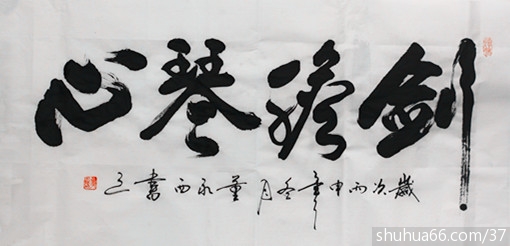 劍膽琴心
歲次丙申年冬月董永西書
shuhua66.com/37